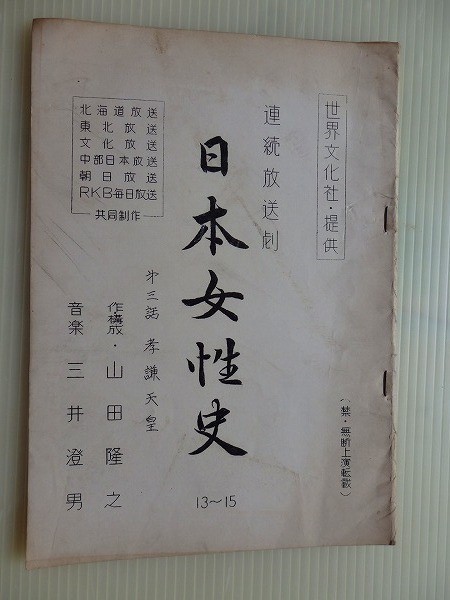 世界文化社・提供
連続放送劇
日本女性史
13〜15
才三話 孝謙天皇
作・構成・山田隆之
音楽 三井澄男
北海道放送
東北放送
文化放送
中部日本放送
朝日放送
RKB毎日放送
共同制作
(禁・無断上演転載)